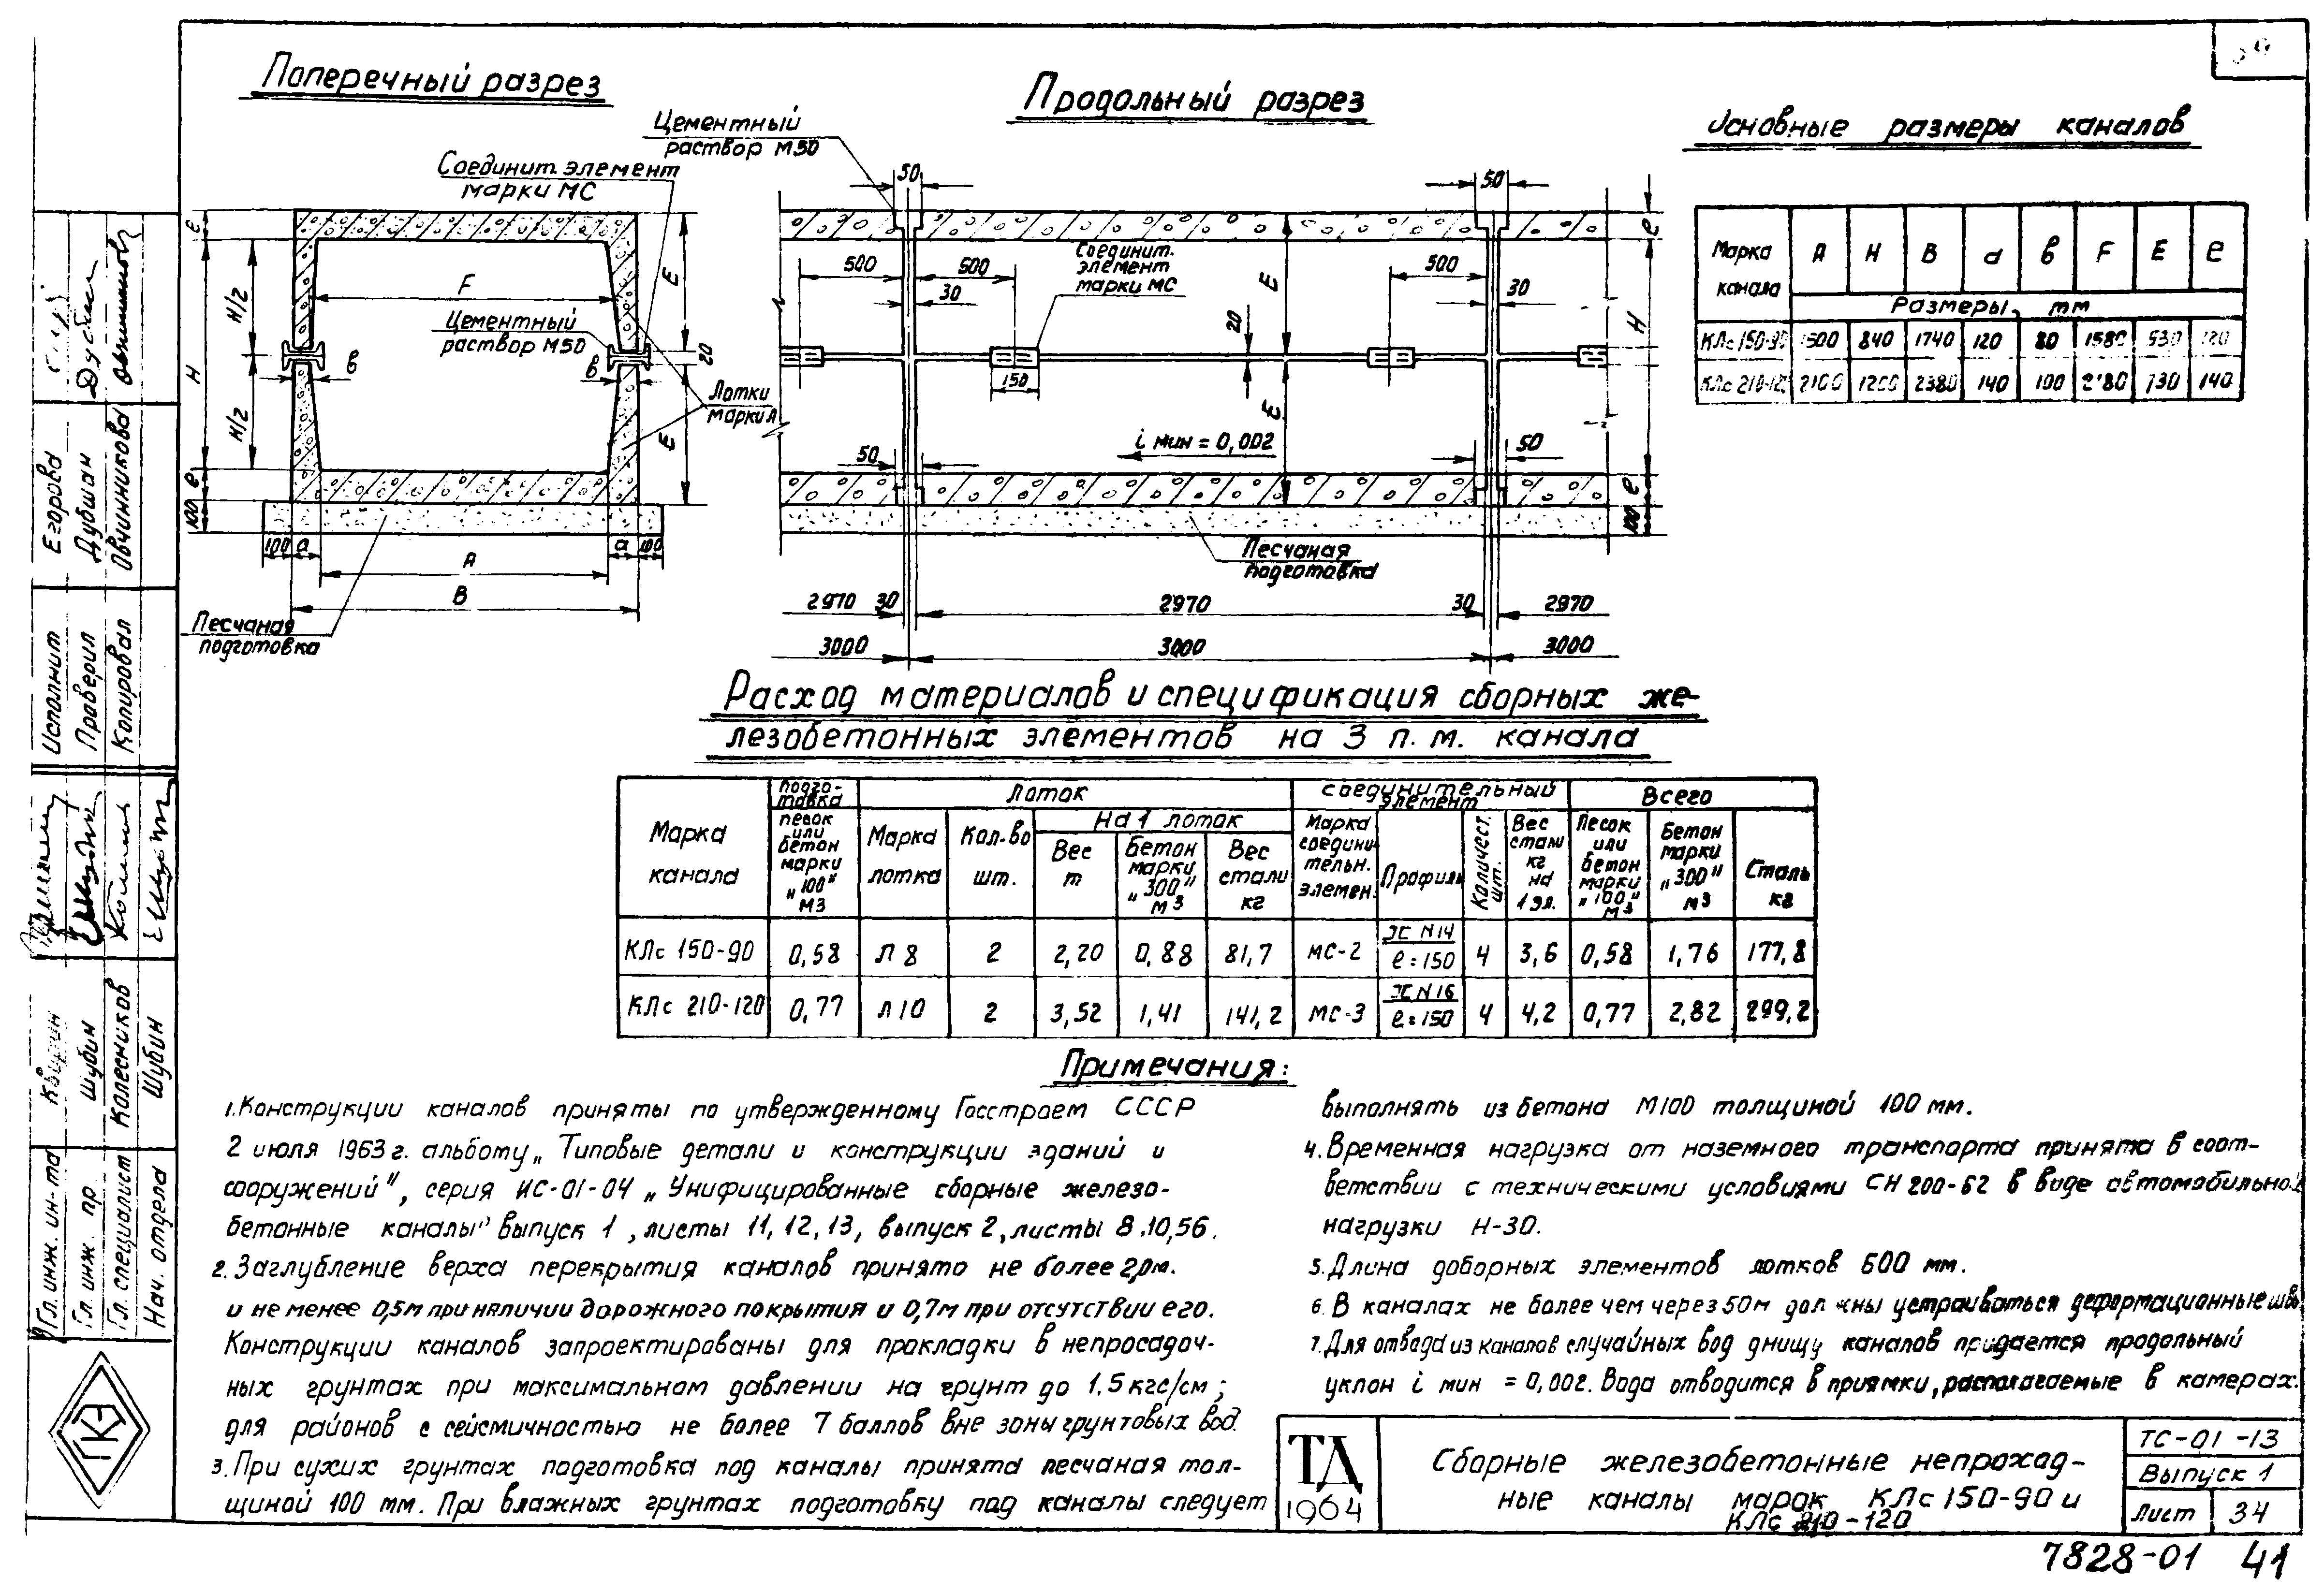 Поперечный разрез
Продольный разрез
Основные размеры каналов
Цементный
раствор М50
Соединит. элемент
марки МС
Цементный
раствор М50
Лотки
марки Л
Песчаная
подготовка
F
H/2
H/2
H
е
е
100
100
а
А
а
100
В
в
в
Е
Е
20
50
50
500
500
500
30
30
Соединит.
элемент
марки МС
150
20
Е
Е
i мин = 0,002
50
50
Н
е
е
100
Песчаная
подготовка
2970 30 2970 30 2970
3000 3000 3000
Марка канала А Н В d в F Е е
Размеры, мм
КЛс 150-90 1500 840 1740 120 80 1580 530 120
КЛс 210-120 2100 1200 2380 140 100 2180 730 140
Расход материалов и спецификация сборных же-
лезобетонных элементов на 3 п.м. канала
Марка канала
Подго-
товка
песок
или
бетон
марки
„100"
м3
Лоток
Марка лотка
Кол-во шт.
На 1 лоток
Вес т
Бетон марки „300" м3
Вес стали кг
Соединительный
элемент
Марка соедини-
тельн. элемен.
Профиль
Количест. шт.
Вес стали кг на 1 эл.
Всего
Песок или бетон марки „100" м3
Бетон марки „300" м3
Сталь кг
КЛс 150-90 0,58 Л 8 2 2,20 0,88 81,7 МС-2 ][ N14 ℓ=150 4 3,6 0,58 1,76 177,8
КЛс 210-120 0,77 Л 10 2 3,52 1,41 141,2 МС-3 ][ N16 ℓ=150 4 4,2 0,77 2,82 299,2
Примечания:
1. Конструкции каналов приняты по утвержденному Госстроем СССР
2 июля 1963 г. альбому „Типовые детали и конструкции зданий и
сооружений", серия ИС-01-04 „Унифицированные сборные железо-
бетонные каналы" выпуск 1, листы 11, 12, 13, выпуск 2, листы 8, 10, 56.
2. Заглубление верха перекрытия каналов принято не более 2,0м.
и не менее 0,5м при наличии дорожного покрытия и 0,7м при отсутствии его.
Конструкции каналов запроектированы для прокладки в непросадоч-
ных грунтах при максимальном давлении на грунт до 1,5 кгс/см;
для районов с сейсмичностью не более 7 баллов вне зоны грунтовых вод.
3. При сухих грунтах подготовка под каналы принята песчаная тол-
щиной 100 мм. При влажных грунтах подготовку под каналы следует
выполнять из бетона М100 толщиной 100 мм.
4. Временная нагрузка от наземного транспорта принята в соот-
ветствии с техническими условиями СН 200-62 в виде автомобильной
нагрузки Н-30.
5. Длина доборных элементов лотков 600 мм.
6. В каналах не более чем через 50м должны устраиваться деформационные швы
7. Для отвода из каналов случайных вод днищу каналов придается продольный
уклон i мин = 0,002. Вода отводится в приямки, располагаемые в камерах.
ТД
1964
Сборные железобетонные непроход-
ные каналы марок КЛс 150-90 и
КЛс 210-120
ТС-01-13
Выпуск 1
Лист 34
7828-01 41
Егорова
Дубшан
Овчинникова
Исполнит
Проверил
Копировал
Шубин
Колесников
Шубин
Гл. инж. ин-та
Гл. инж. пр
Гл. специалист
Нач. отдела